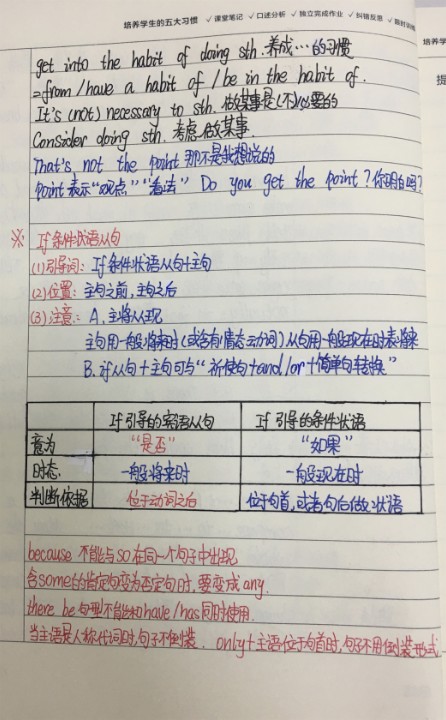 培养学生的五大习惯 ✓课堂笔记 ✓口述分析 ✓独立完成作业 ✓纠错反思 ✓限时训练
培养学
提
get into the habit of doing sth. 养成…的习惯
=from/have a habit of /be in the habit of.
It's (not) necessary to sth. 做某事是(不)必要的
Consider doing sth. 考虑做某事.
That's not the point 那不是我想说的
point表示“观点”“看法” Do you get the point?你明白吗?
※ If条件状语从句
(1)引导词: If条件状语从句+主句
(2)位置: 主句之前,主句之后
(3)注意: A.主将从现
主句用一般将来时(或含有情态动词)从句用一般现在时表将来
B. if从句+主句可与“祈使句+and/or+简单句转换”
If引导的宾语从句 If引导的条件状语
意为 “是否” “如果”
时态 一般将来时 一般现在时
判断依据 位于动词之后 位于句首,或者句后做状语
because 不能与so在同一个句子中出现
含some的肯定句变为否定句时,要变成any.
there be句型不能和have/has同时使用.
当主语是人称代词时,句子不倒装. only+主语位于句首时,句子不用倒装形式